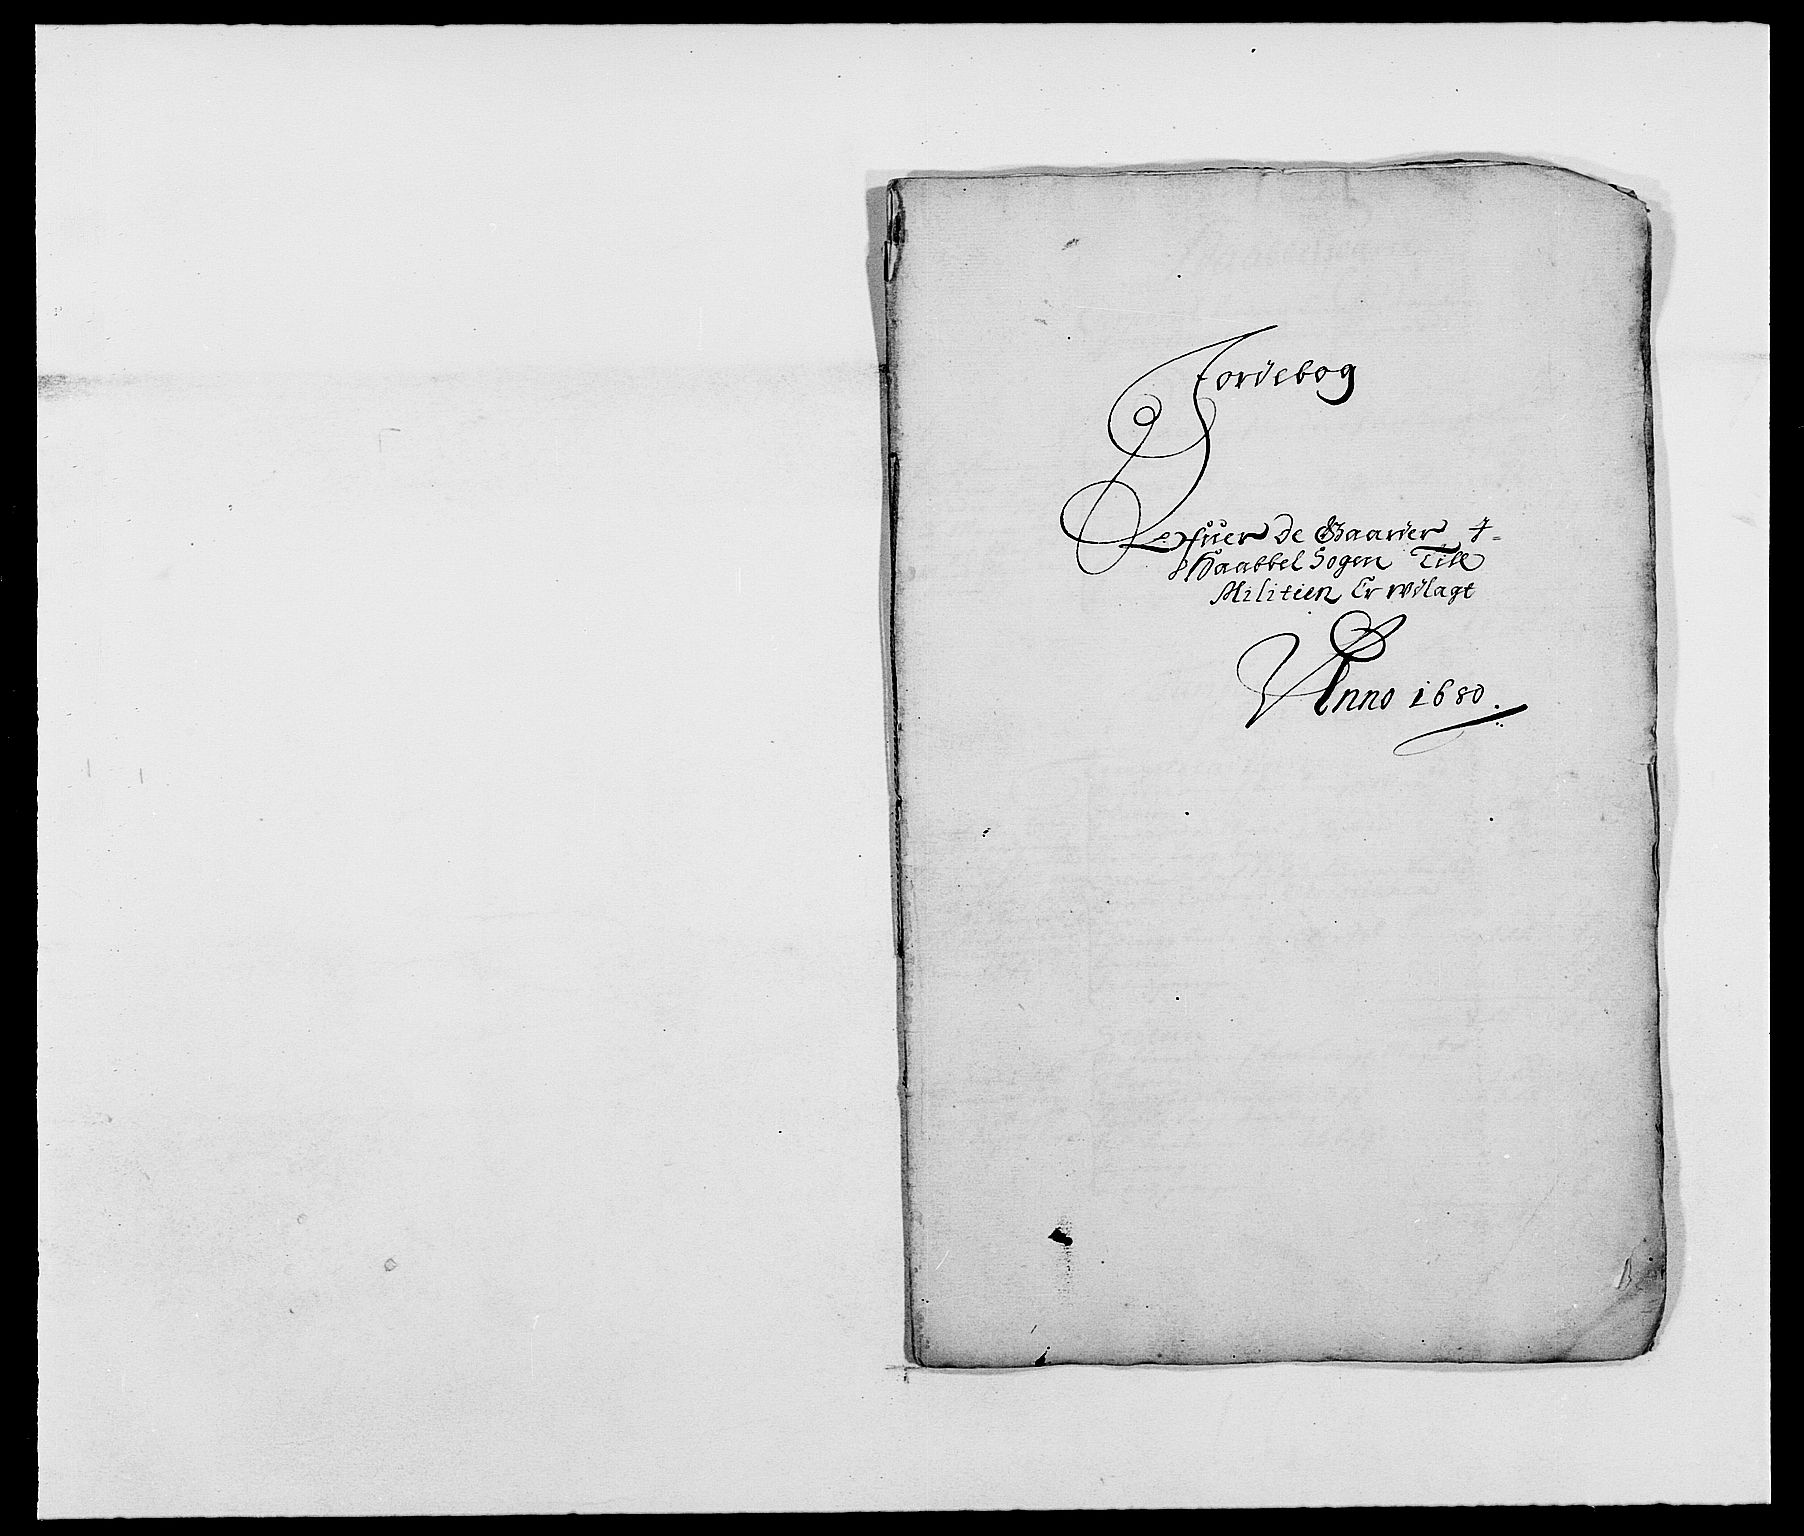 Jordebog
Offuer de Gaarder J
Haabbel Sogen Till
Militien Er Wdlagt
Anno 1680.